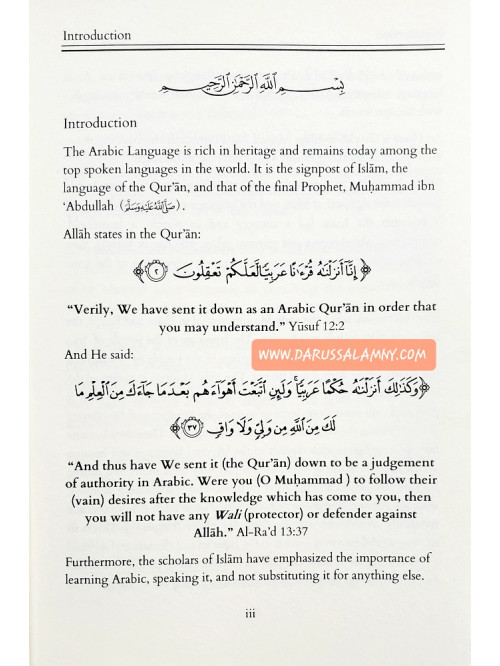 Introduction
بِسْمِ اللَّهِ الرَّحْمَٰنِ الرَّحِيمِ
Introduction
The Arabic Language is rich in heritage and remains today among the
top spoken languages in the world. It is the signpost of Islām, the
language of the Qur'ān, and that of the final Prophet, Muḥammad ibn
'Abdullah (صَلَّى اللَّهُ عَلَيْهِ وَسَلَّمَ).
Allāh states in the Qur'ān:
﴿إِنَّآ أَنزَلْنَٰهُ قُرْءَٰنًا عَرَبِيًّا لَّعَلَّكُمْ تَعْقِلُونَ ٢﴾
“Verily, We have sent it down as an Arabic Qur'ān in order that
you may understand.” Yūsuf 12:2
And He said:
WWW.DARUSSALAMNY.COM
﴿وَكَذَٰلِكَ أَنزَلْنَٰهُ حُكْمًا عَرَبِيًّا ۚ وَلَئِنِ ٱتَّبَعْتَ أَهْوَآءَهُم بَعْدَمَا جَآءَكَ مِنَ ٱلْعِلْمِ مَا
لَكَ مِنَ ٱللَّهِ مِن وَلِىٍّ وَلَا وَاقٍ ٣٧﴾
“And thus have We sent it (the Qur'ān) down to be a judgement
of authority in Arabic. Were you (O Muḥammad ) to follow their
(vain) desires after the knowledge which has come to you, then
you will not have any Wali (protector) or defender against
Allāh.” Al-Ra'd 13:37
Furthermore, the scholars of Islām have emphasized the importance of
learning Arabic, speaking it, and not substituting it for anything else.
iii